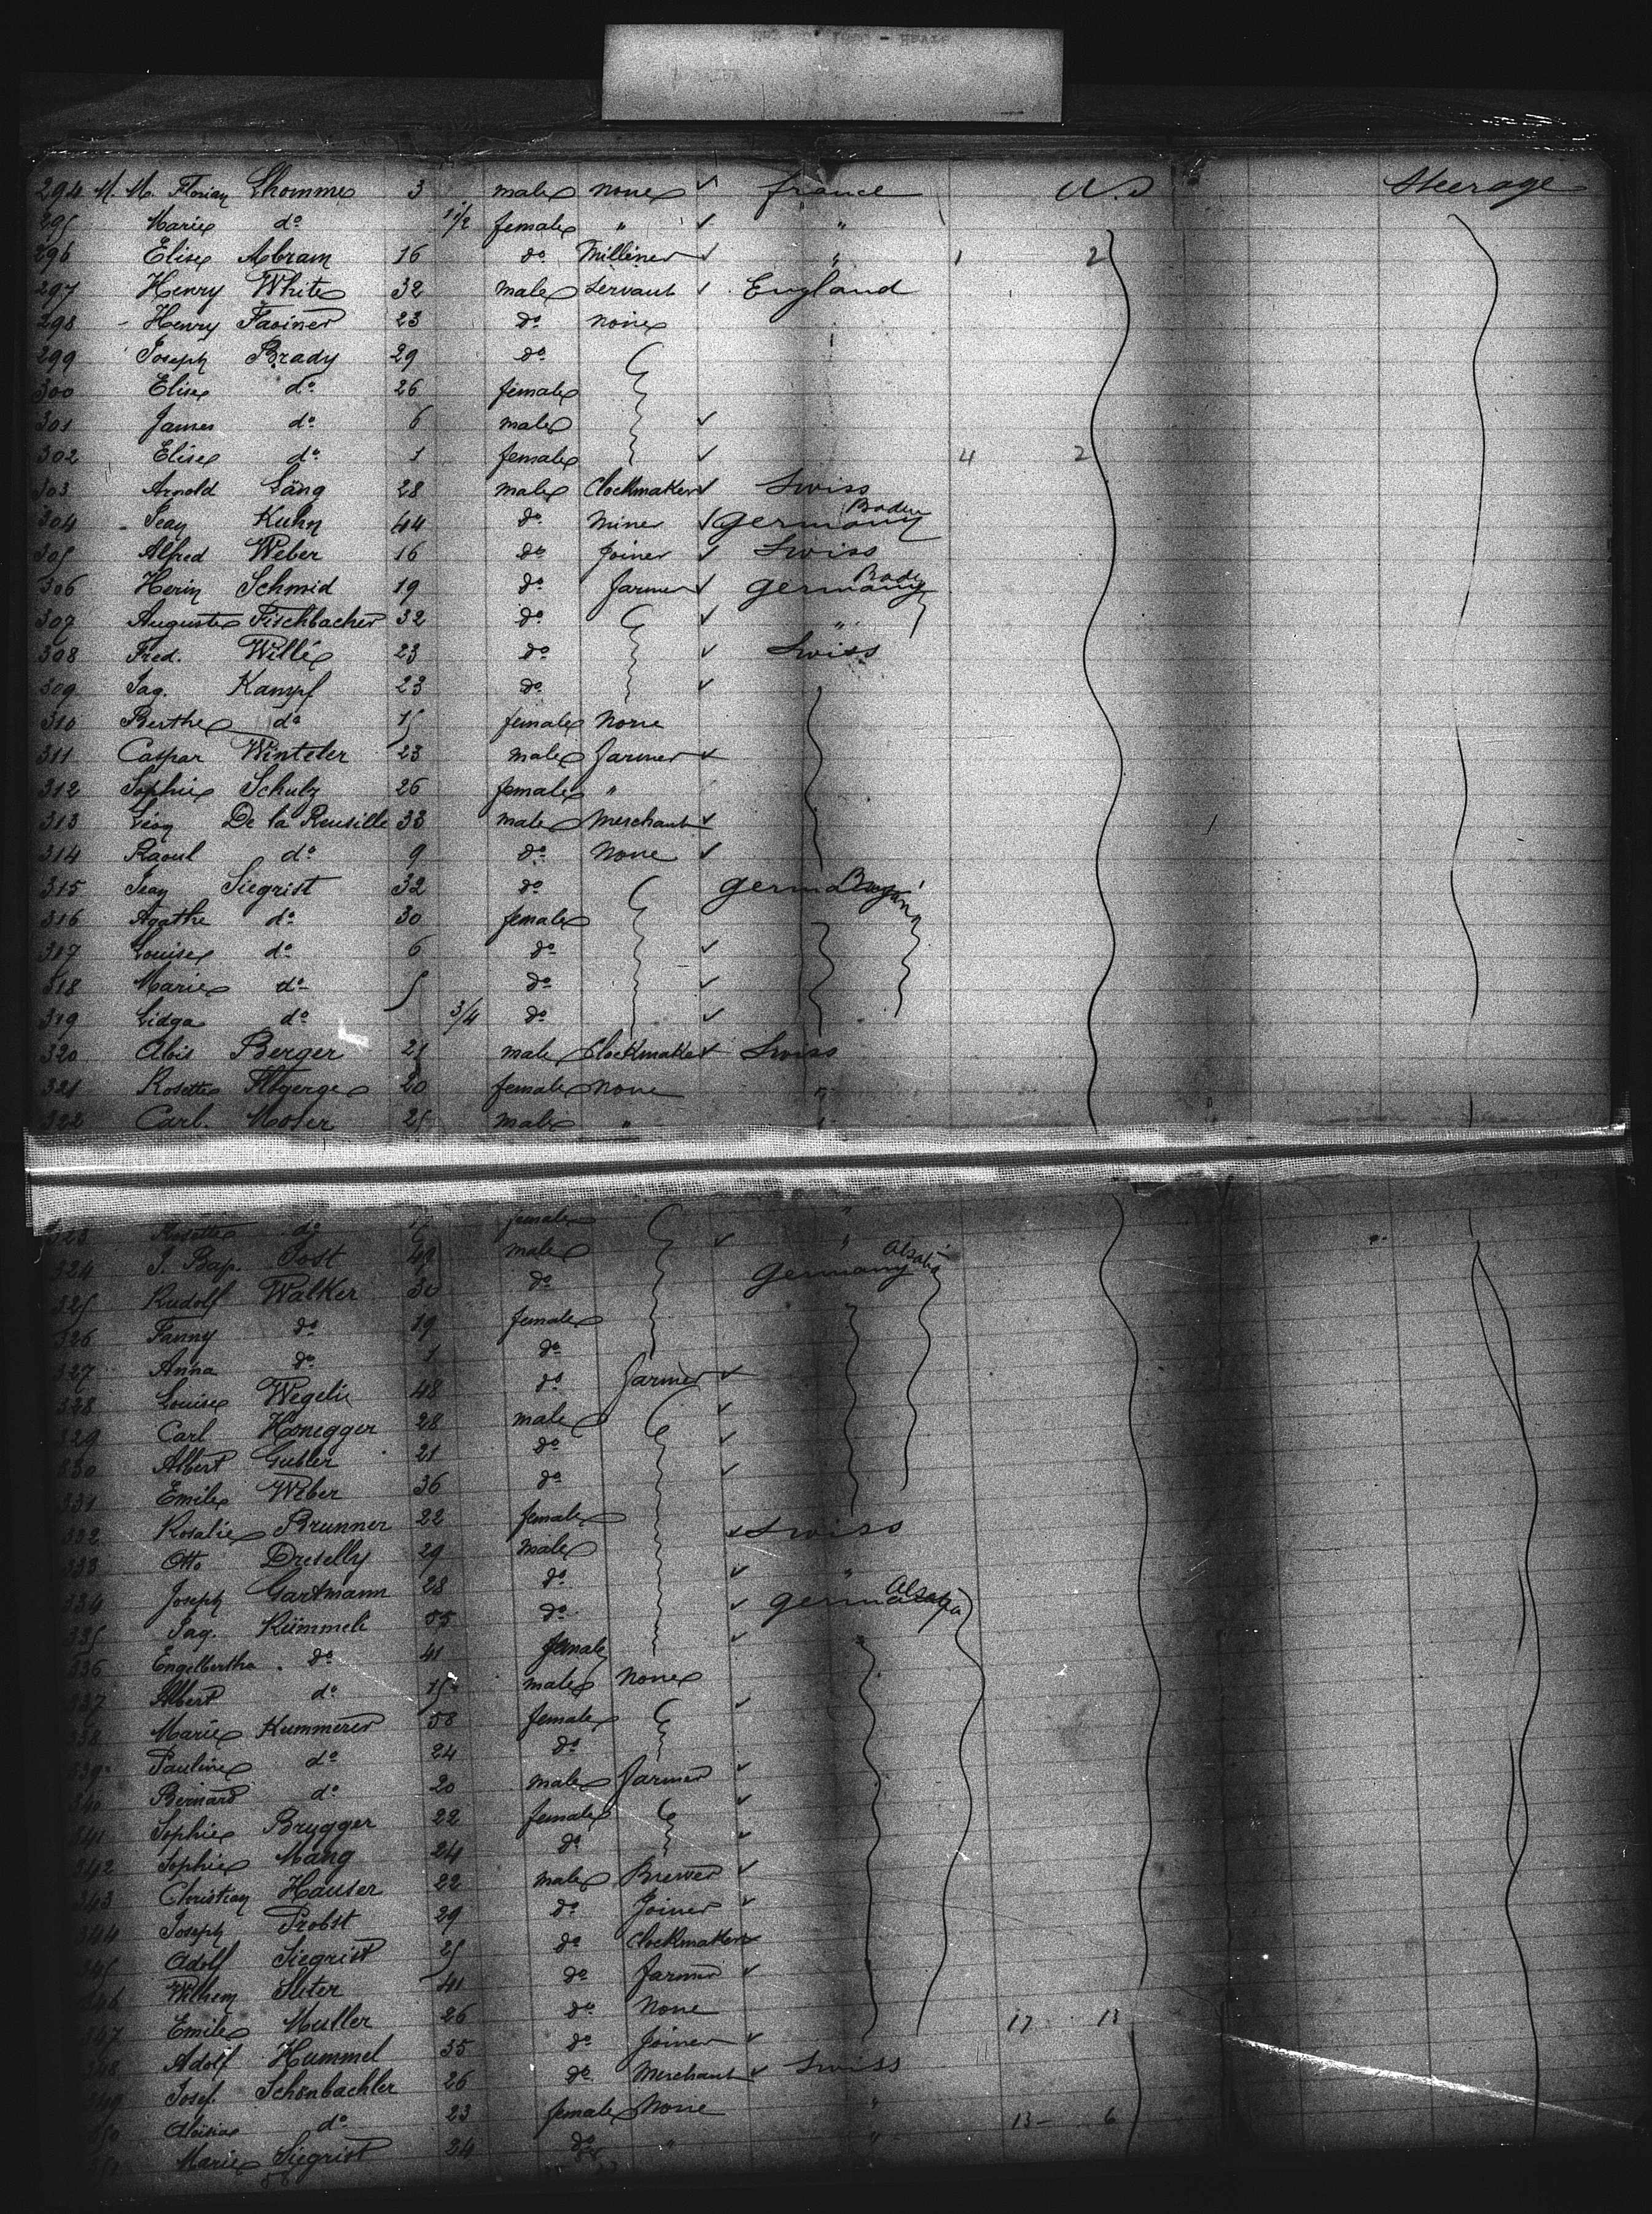 294 M. M. Florian Lhomme 3 male none ✓ france U.S Steerage
295 Marie do 1 1/2 female " ✓ "
296 Elise Abram 16 do Milliner ✓ " 1 2
297 Henry White 32 male Servant ✓ England
298 Henry Faviner 23 do none
299 Joseph Brady 29 do
300 Elise do 26 female
301 James do 6 male ✓
302 Elise do 1 female ✓ 4 2
303 Arnold Läng 28 male Clockmaker ✓ Swiss
304 Jean Kuhn 44 do Miner ✓ Germany Baden
305 Alfred Weber 16 do Joiner ✓ Swiss
306 Herin Schmid 19 do farmer ✓ Germany Bade
307 Auguste Fischbacher 32 do ✓ "
308 Fred. Willi 23 do ✓ Swiss
309 Jaq. Kampf 23 do ✓
310 Berthe do 15 female None
311 Caspar Winteler 23 male farmer ✓
312 Sophie Schulz 26 female "
313 Léon De la Reusille 33 male Merchant ✓
314 Raoul do 9 do None ✓
315 Jean Siegrist 32 do Germany
316 Agathe do 30 female
317 Louise do 6 do ✓
318 Marie do 5 do ✓
319 Lidga do 3/4 do ✓
320 Alois Berger 21 male Clockmaker ✓ Swiss
321 Rosette 20 female None "
322 Carl. Moser 25 male " "
323 Rosette do female "
324 J. Bap. Jost 49 male ✓ "
325 Rudolf Walker 30 do Germany Alsatia
326 Fanny do 19 female
327 Anna do 1 do
328 Louise Wegelin 48 do farmer ✓
329 Carl Honegger 28 male ✓
330 Albert Gubler 21 do ✓
331 Emile Weber 36 do ✓
332 Rosalie Brunner 22 female
333 Otto Dreselly 29 male ✓ Swiss
334 Joseph Gartmann 28 do ✓ "
335 Jaq. Kümmeli 55 do ✓ Germany Alsatia
336 Engelbertha do 41 female ✓
337 Albert do 15 male None
338 Marie Kummerer 58 female ✓
339 Pauline do 24 do
340 Bernard do 20 male farmer ✓
341 Sophie Brugger 22 female ✓
342 Sophie Mang 24 do ✓
343 Christian Hauser 22 male Brewer ✓
344 Joseph Probst 29 do Joiner ✓
345 Adolf Siegrist 25 do Clockmaker ✓
346 Wilhem Suter 41 do farmer ✓
347 Emile Muller 26 do None 17 18
348 Adolf Hummel 35 do Joiner ✓
349 Josef. Schönbachler 26 do Merchant ✓ Swiss
350 Aloisia do 23 female None " 13 6
351 Marie Siegrist 24 do " "